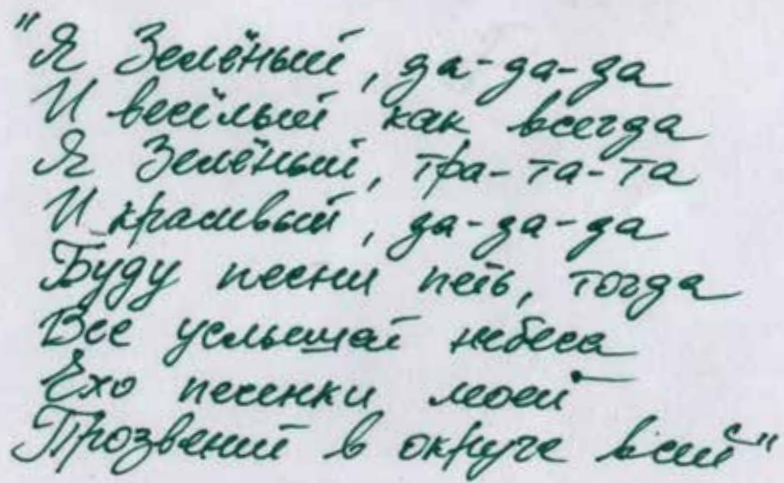 "Я Зелёный, да-да-да
И весёлый как всегда
Я Зелёный, тра-та-та
И красивый, да-да-да
Буду песни петь, тогда
Все услышат небеса
Ехо песенки моей
Прозвенит в округе всей"